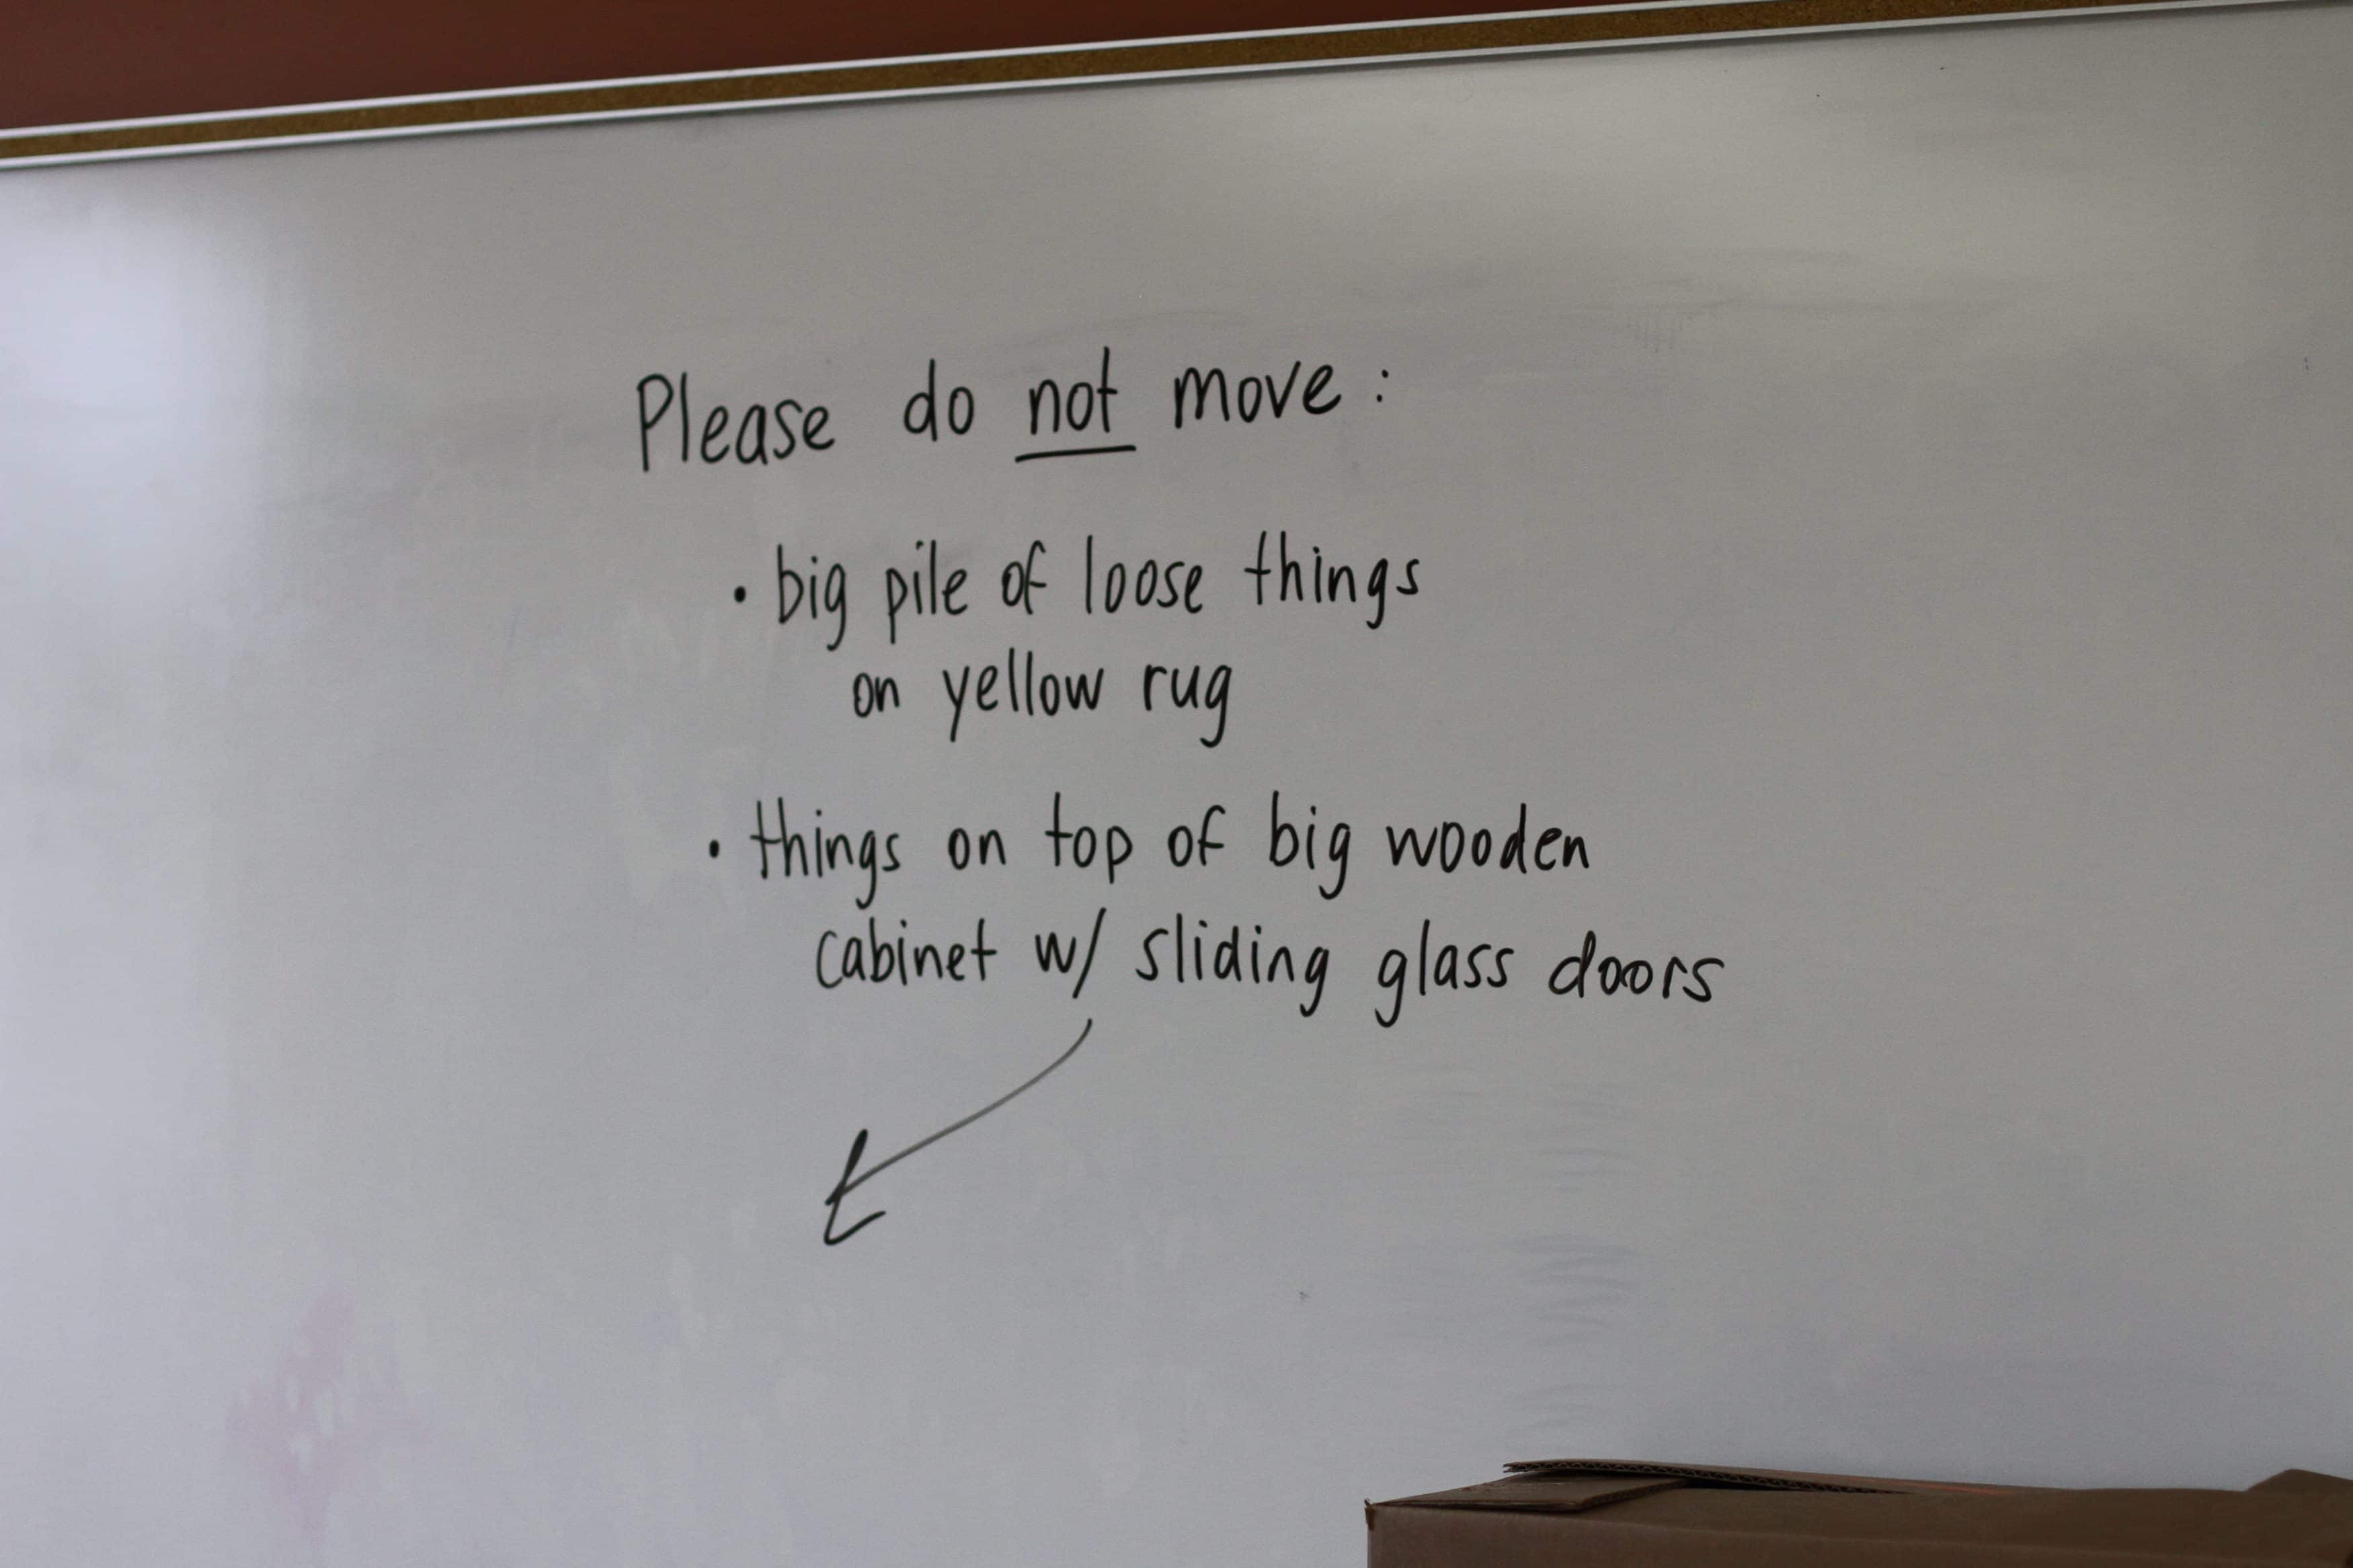 Please do not move:
• big pile of loose things
on yellow rug
• things on top of big wooden
cabinet w/ sliding glass doors